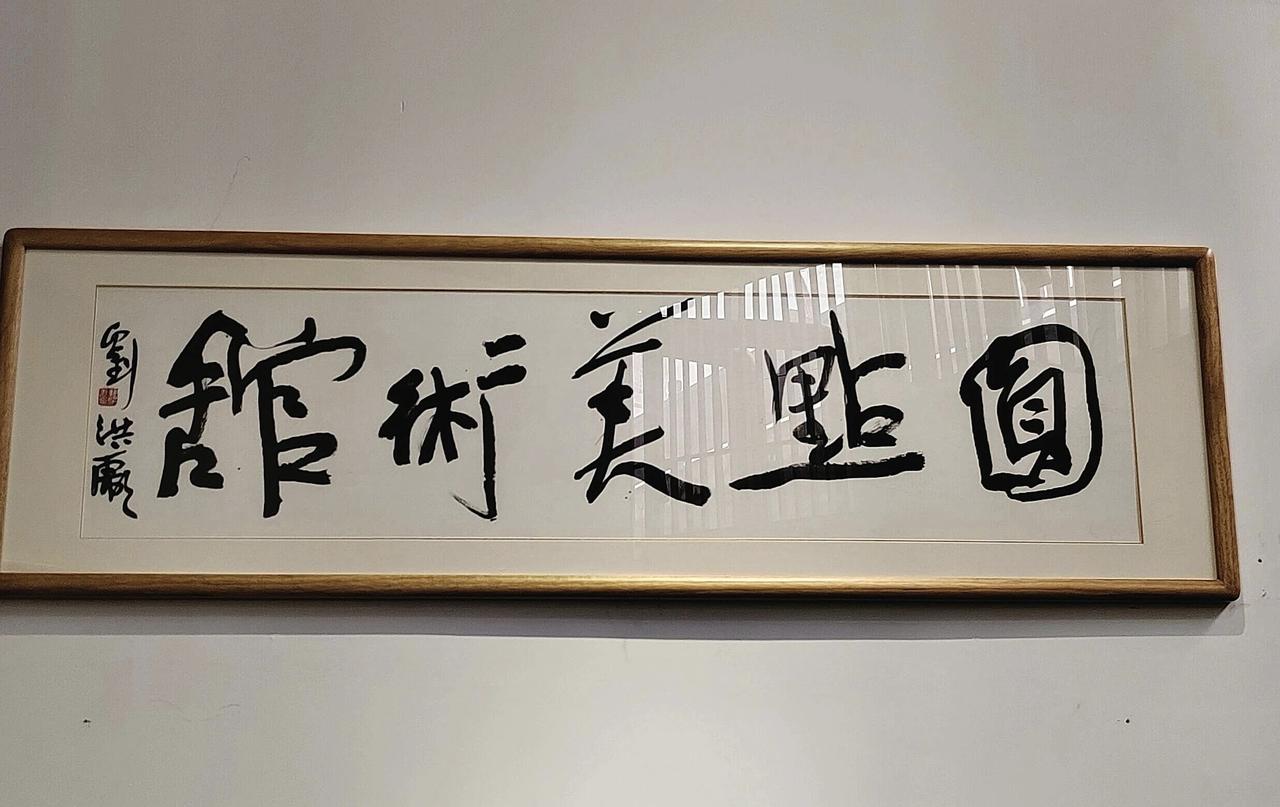 圓點美術館
劉洪